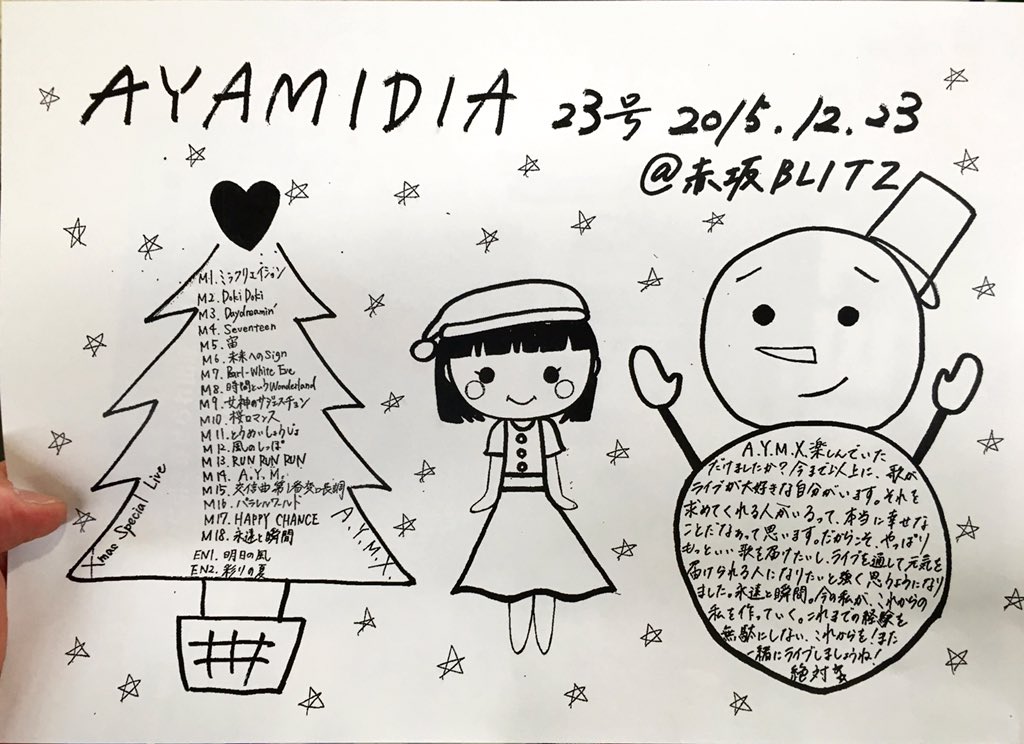 AYAMIDIA 23号 2015.12.23
@赤坂BLITZ
M1. ミラクリエイション
M2. Doki Doki
M3. Daydreamin'
M4. Seventeen
M5. 宙
M6. 未来へのSign
M7. Pearl-White Eve
M8. 時間というWonderland
M9. 女神のサジェスチョン
M10. 桜ロマンス
M11. とうめいしょうじょ
M12. 風のしっぽ
M13. RUN RUN RUN
M14. A.Y.M.
M15. 交信曲第1番変ロ長調
M16. パラレルワールド
M17. HAPPY CHANCE
M18. 永遠と瞬間
EN1. 明日の風
EN2. 彩りの夏
Xmas Special Live
A.Y.M.X
A.Y.M.X.楽しんでいた
だけましたか?今まで以上に、歌が
ライブが大好きな自分がいます。それを
求めてくれる人がいるって、本当に幸せな
ことだなあって思います。だからこそ、やっぱり
もっといい歌を届けたいし、ライブを通して元気を
届けられる人になりたいと強く思うようになり
ました。永遠と瞬間。今の私が、これからの
私を作っていく。これまでの経験を
無駄にしない、これからを!また
一緒にライブしましょうね!
絶対